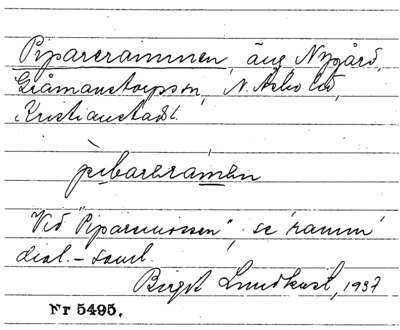 Piparerammen, äng Nygård,
Gråmanstorpssn, N. Åsbo hd,
Kristianstads l.
pibareramen
Vid "Piparemossen", se 'ramm'
dial.-saml.
Birgit Lundkvist, 1937
Nr 5495.